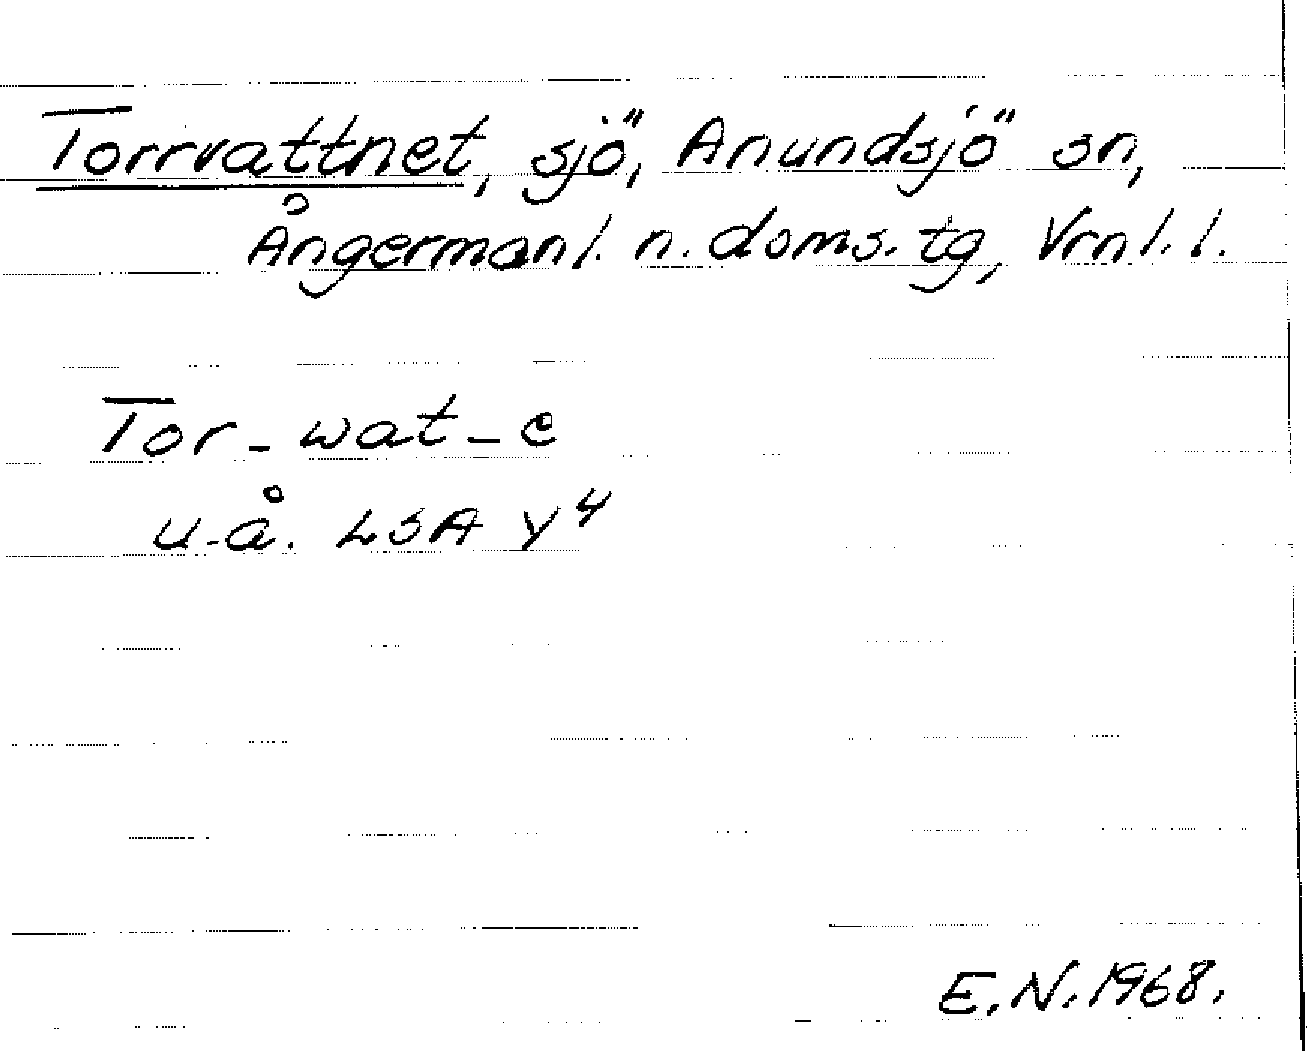 Torrvattnet, sjö, Anundsjö sn,
Ångermanl. n. doms. tg, Vrnl. l.
Tor-wat-e
u.å. LSA Y4
E.N. 1968.